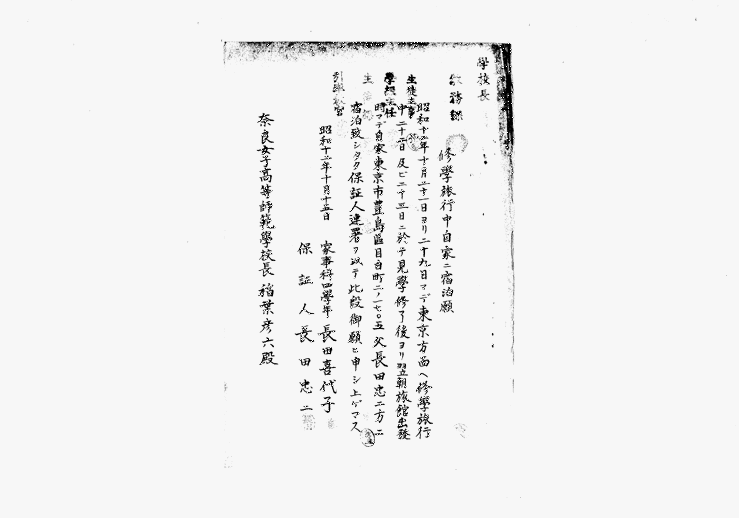 學校長
教務課
生徒主事
學級主任
引率教官
修學旅行中自家ニ宿泊願
昭和十二年十月二十一日ヨリ二十九日マデ東京方面ヘ修學旅行
中二十二日及ビ二十三日ニ於テ見學修了後ヨリ翌朝旅館出發
時マデ自家東京市豊島區目白町二ノ一七〇五父長田忠二方ニ
宿泊致シタク保証人連署ヲ以テ此段御願ヒ申シ上ゲマス
昭和十二年十月十五日
家事科四學年 長田喜代子
保証人 長田忠二
奈良女子高等師範學校長 稲葉彦六殿